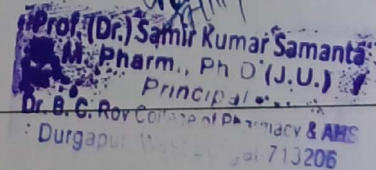 Prof. (Dr.) Samir Kumar Samanta
M. Pharm., Ph D (J.U.)
Principal
Dr. B. C. Roy College of Pharmacy & AHS
Durgapur, 713206